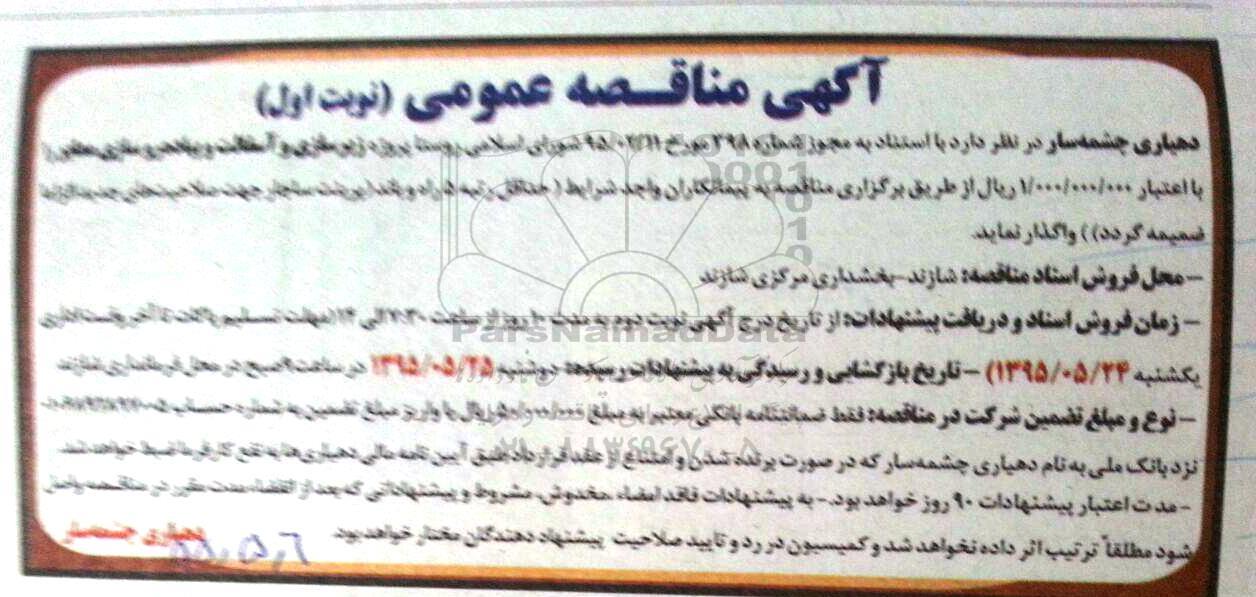 آگهی مناقصه عمومی (نوبت اول)
دهیاری چشمه‌سار در نظر دارد با استناد به مجوز شماره ۳۹۸ مورخ ۹۵/۰۲/۱۱ شورای اسلامی روستا پروژه زیرسازی و آسفالت و پیاده‌رو سازی معابر را
با اعتبار ۱/۰۰۰/۰۰۰/۰۰۰ ریال از طریق برگزاری مناقصه به پیمانکاران واجد شرایط ( حداقل رتبه ۵ راه و باند (پرینت ساجار جهت صلاحیت‌های جدید الزاما
ضمیمه گردد)) واگذار نماید.
– محل فروش اسناد مناقصه: شازند-بخشداری مرکزی شازند
– زمان فروش اسناد و دریافت پیشنهادات: از تاریخ درج آگهی نوبت دوم به مدت ۱۰ روز از ساعت ۷:۳۰ الی ۱۴ (مهلت تسلیم پاکات تا آخر وقت اداری
یکشنبه ۱۳۹۵/۰۵/۲۴) – تاریخ بازگشایی و رسیدگی به پیشنهادات رسیده: دوشنبه ۱۳۹۵/۰۵/۲۵ در ساعت ۹ صبح در محل فرمانداری شازند
– نوع و مبلغ تضمین شرکت در مناقصه: فقط ضمانتنامه بانکی معتبر به مبلغ ریال یا واریز مبلغ تضمین به شماره حساب
نزد بانک ملی به نام دهیاری چشمه‌سار که در صورت برنده شدن و امتناع از عقد قرارداد طبق آیین نامه مالی دهیاری‌ها به نفع کارفرما ضبط خواهد شد.
- مدت اعتبار پیشنهادات ۹۰ روز خواهد بود. - به پیشنهادات فاقد امضاء، مخدوش، مشروط و پیشنهاداتی که بعد از انقضاء مدت مقرر در مناقصه واصل
شود مطلقاً ترتیب اثر داده نخواهد شد و کمیسیون در رد و تایید صلاحیت پیشنهاد دهندگان مختار خواهد بود.
دهیاری چشمه‌سار
۹۵،۵،۶
ParsNamadData
۰۲۱-۸۸۳۴۹۶۷۰-۵